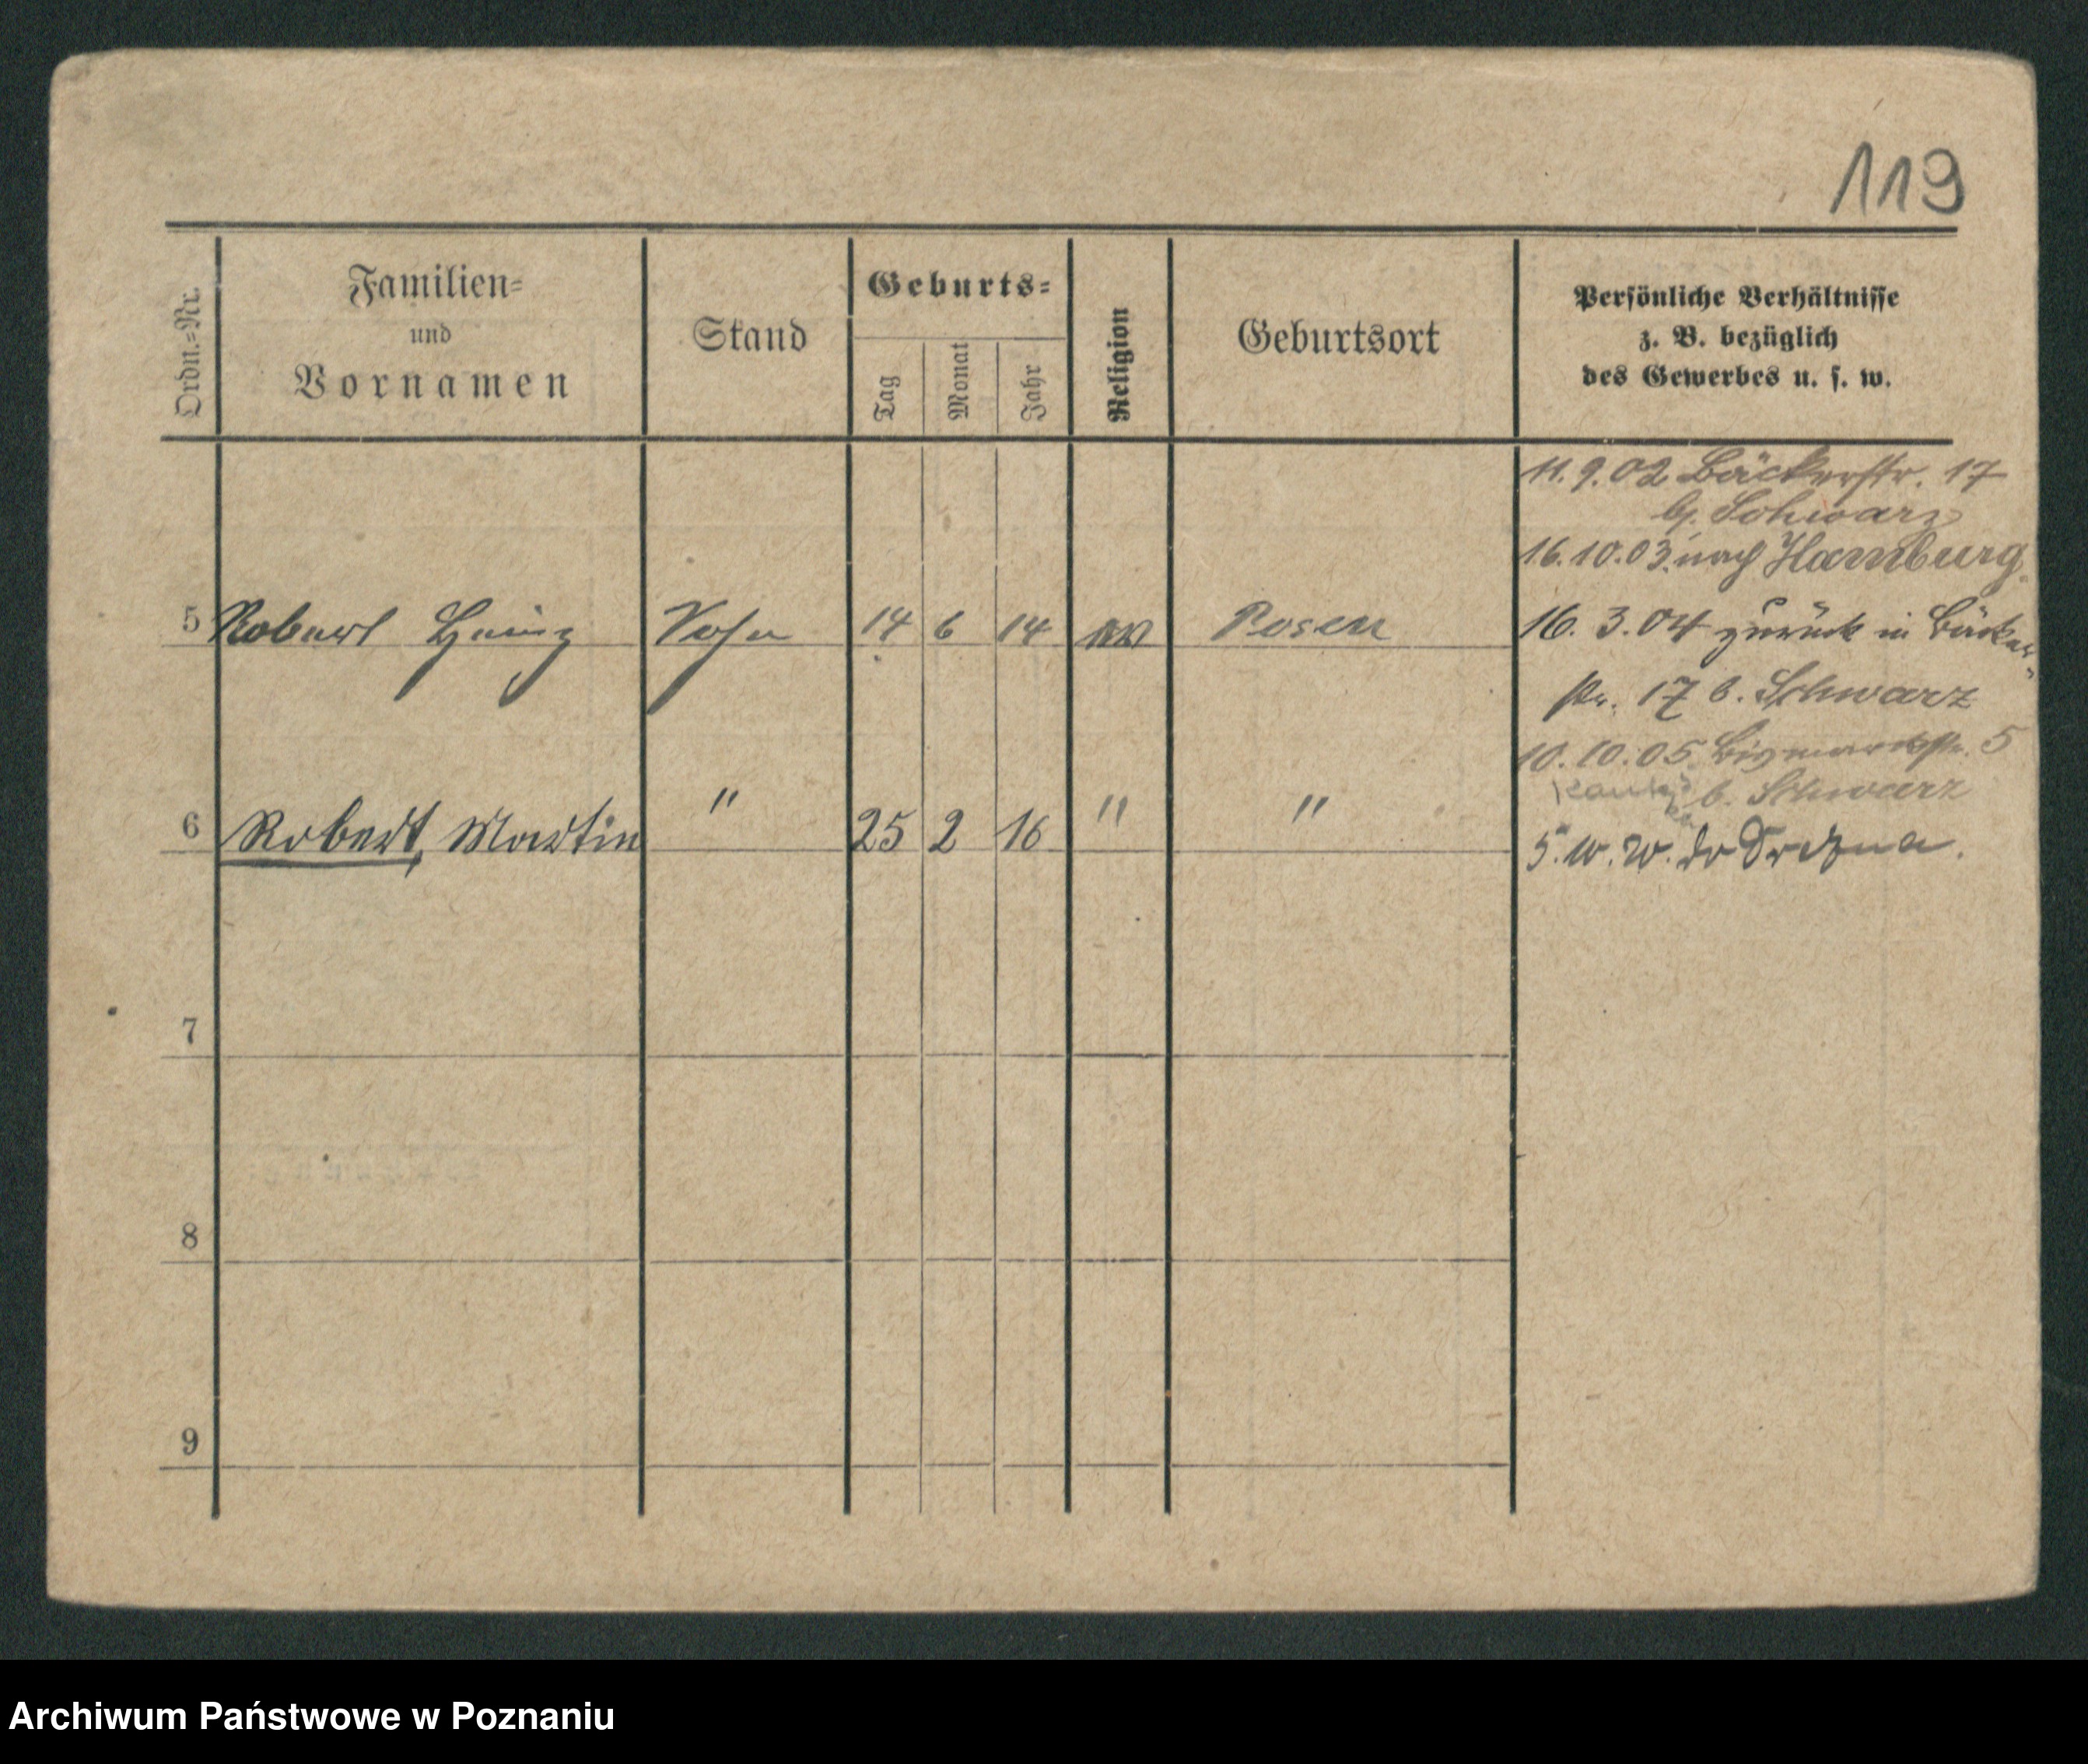 119
Ordn.=Nr.
Familien=
und
Vornamen
Stand
Geburts=
Tag
Monat
Jahr
Religion
Geburtsort
Persönliche Verhältnisse
z. B. bezüglich
des Gewerbes u. s. w.
11. 9. 02 Bäckerstr. 17
b. Schwarz
16. 10. 03. nach Hamburg.
5 Robert Heinz Sohn 14 6 14 Posen
16. 3. 04 zurück in Bäcker-
str. 17 b. Schwarz
10. 10. 05. Bismarckstr. 5
b. Schwarz
6 Robert, Martin " 25 2 16 " "
7
8
9
Archiwum Państwowe w Poznaniu